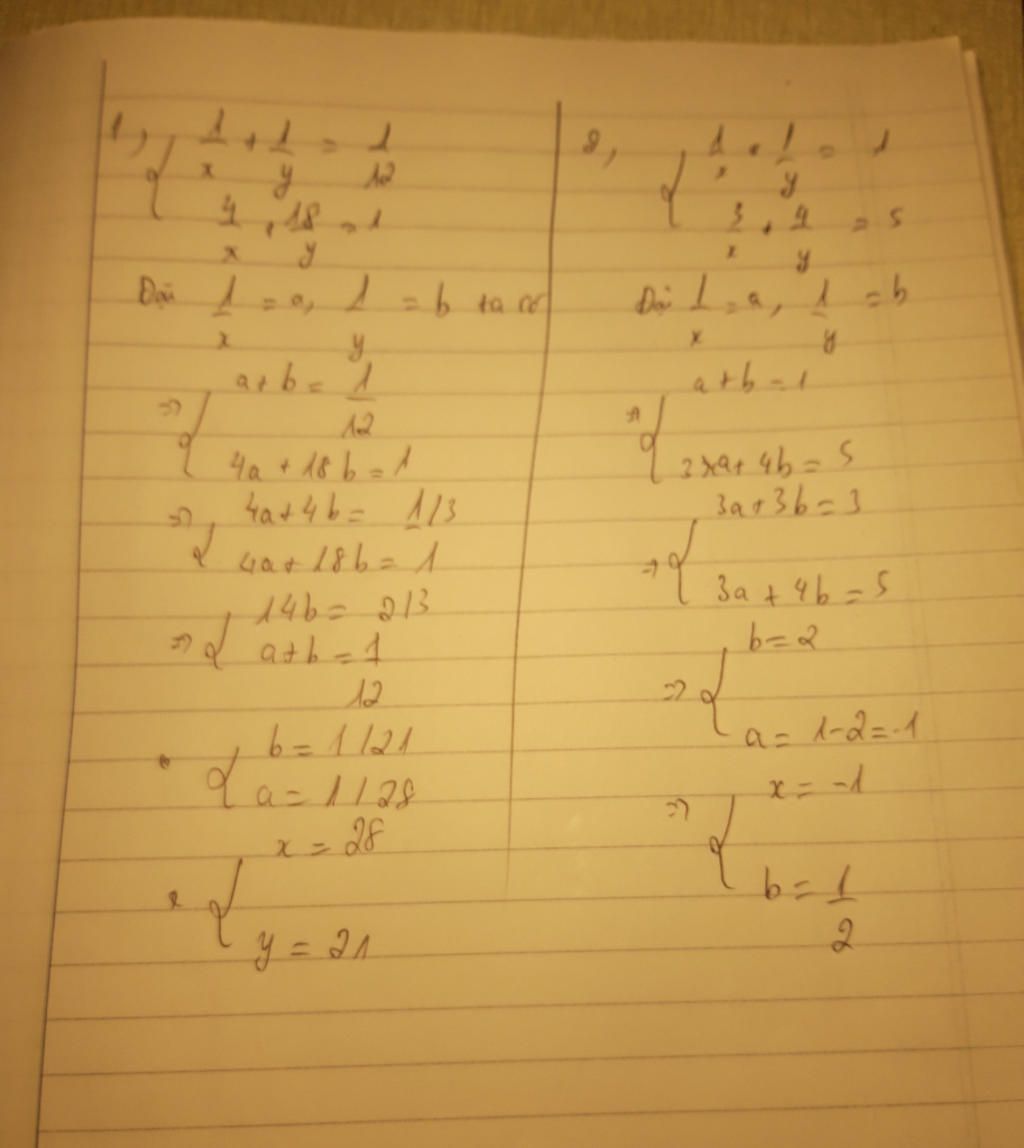 1, 1/x + 1/y = 1/12
4/x + 18/y = 1
Đặt 1/x = a, 1/y = b ta có
=> a+b = 1/12
4a + 18b = 1
=> 4a+4b = 1/3
4a+18b = 1
=> 14b = 2/3
a+b = 1/12
b = 1/21
a = 1/28
x = 28
y = 21
2, 1/x + 1/y = 1
3/x + 4/y = 5
Đặt 1/x = a, 1/y = b
a+b = 1
3a+4b = 5
=> 3a+3b = 3
3a + 4b = 5
=> b = 2
a = 1-2 = -1
=> x = -1
b = 1/2